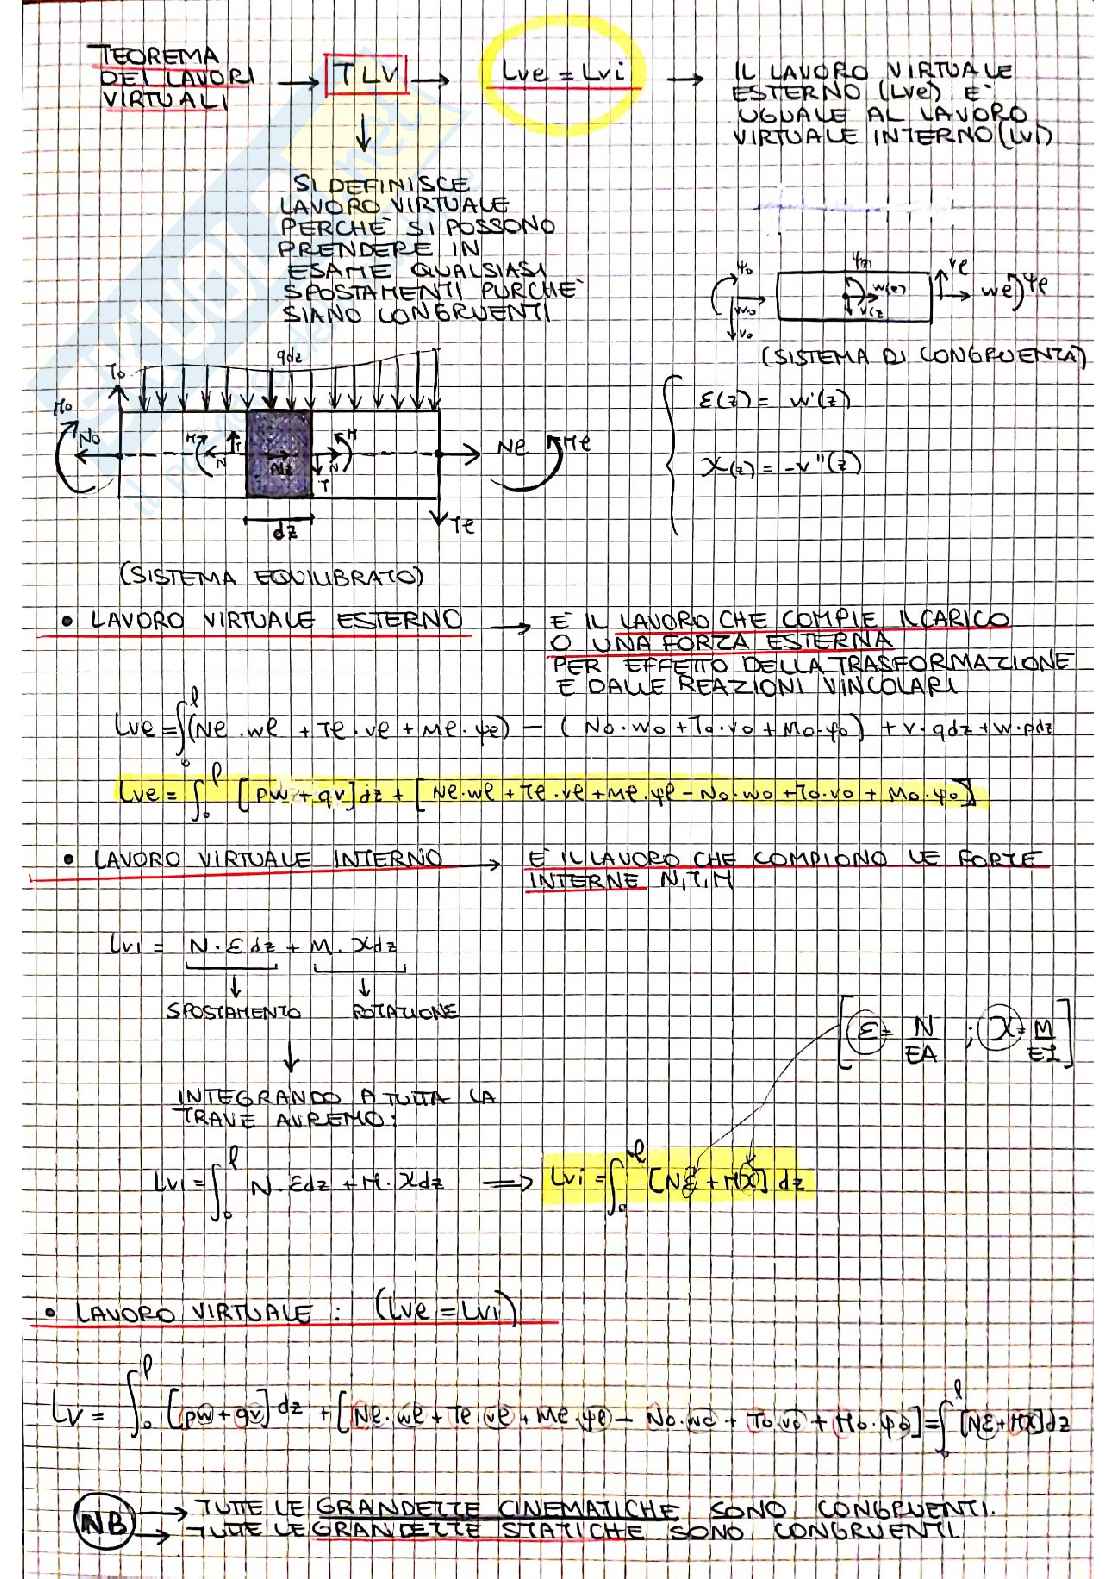 TEOREMA
DEI LAVORI
VIRTUALI
→ TLV →
Lve = Lvi
→ IL LAVORO VIRTUALE
ESTERNO (Lve) E'
UGUALE AL LAVORO
VIRTUALE INTERNO (Lvi)
SI DEFINISCE
LAVORO VIRTUALE
PERCHE' SI POSSONO
PRENDERE IN
ESAME QUALSIASI
SPOSTAMENTI PURCHE'
SIANO CONGRUENTI
φ0 φm ve
w0 w(z) we φe
v0 v(z
(SISTEMA DI CONGRUENZA)
ε(z) = w'(z)
χ(z) = -v''(z)
qdz
T0
M0
N0 M T N M N T Ne Me
dz Te
(SISTEMA EQUILIBRATO)
• LAVORO VIRTUALE ESTERNO → E' IL LAVORO CHE COMPIE IL CARICO
O UNA FORZA ESTERNA
PER EFFETTO DELLA TRASFORMAZIONE
E DALLE REAZIONI VINCOLARI
Lve = ∫0^l (Ne·we + Te·ve + Me·φe) - (N0·w0 + T0·v0 + M0·φ0) + v·qdz + w·pdz
Lve = ∫0^l [pw + qv]dz + [Ne·we + Te·ve + Me·φe - N0·w0 + T0·v0 + M0·φ0]
• LAVORO VIRTUALE INTERNO → E' IL LAVORO CHE COMPIONO LE FORZE
INTERNE N,T,M
Lvi = N·εdz + M·χdz
SPOSTAMENTO ROTAZIONE
[ε = N/EA ; χ = M/EI]
INTEGRANDO A TUTTA LA
TRAVE AVREMO:
Lvi = ∫0^l N·εdz + M·χdz ⇒ Lvi = ∫0^l [Nε + Mχ] dz
• LAVORO VIRTUALE : (Lve = Lvi)
Lv = ∫0^l [pw + qv] dz + [Ne·we + Te ve + Me·φe - N0·w0 + T0 v0 + M0·φ0] = ∫0^l [Nε + Mχ]dz
NB → TUTTE LE GRANDEZZE CINEMATICHE SONO CONGRUENTI.
→ TUTTE LE GRANDEZZE STATICHE SONO CONGRUENTI.